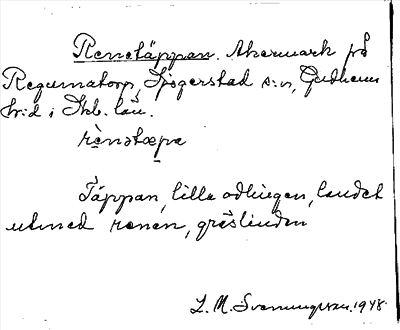 Renetäppan. Åkermark på
Regumatorp, Sjogerstad s:n, Gudhem
h:d i Skb. län.
rènetæpa
Täppan, lilla odlingen, landet
utmed renen, gräslinden
L. M. Svenungsson. 1948.